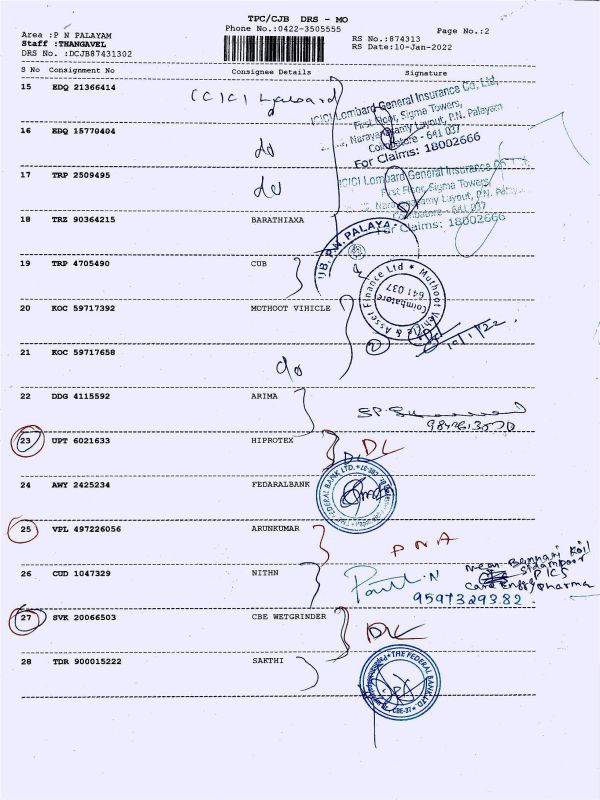 TPC/CJB DRS - MO
Phone No.:0422-3505555
Page No.:2
Area :P N PALAYAM
Staff :THANGAVEL
DRS No. :DCJB87431302
RS No.:874313
RS Date:10-Jan-2022
S No Consignment No Consignee Details Signature
15 EDQ 21366414 ICICI Lombard
ICICI Lombard General Insurance Co. Ltd,
First Floor, Sigma Towers,
Narayanasamy Layout, P.N. Palayam
Coimbatore - 641 037
For Claims: 18002666
16 EDQ 15770404 do
17 TRP 2509495 do
ICICI Lombard General Insurance Co. Ltd,
First Floor, Sigma Towers,
Narayanasamy Layout, P.N. Palayam
Coimbatore - 641 037
For Claims: 18002666
18 TRZ 90364215 BARATHIAXA
UB, P.N. PALAYA
19 TRP 4705490 CUB
Muthoot Vehicle & Asset Finance Ltd
Coimbatore
641 037
20 KOC 59717392 MOTHOOT VIHICLE
10/1/22
21 KOC 59717658 do
22 DDG 4115592 ARIMA
23 UPT 6021633 HIPROTEX DL
24 AWY 2425234 FEDARALBANK
FEDERAL BANK LTD.
25 VPL 497226056 ARUNKUMAR PNA
26 CUD 1047329 NITHN
near Bannari Koil
9597329382
27 SVK 20066503 CBE WETGRINDER DL
28 TDR 900015222 SAKTHI
THE FEDERAL BANK LTD.
CBE-37